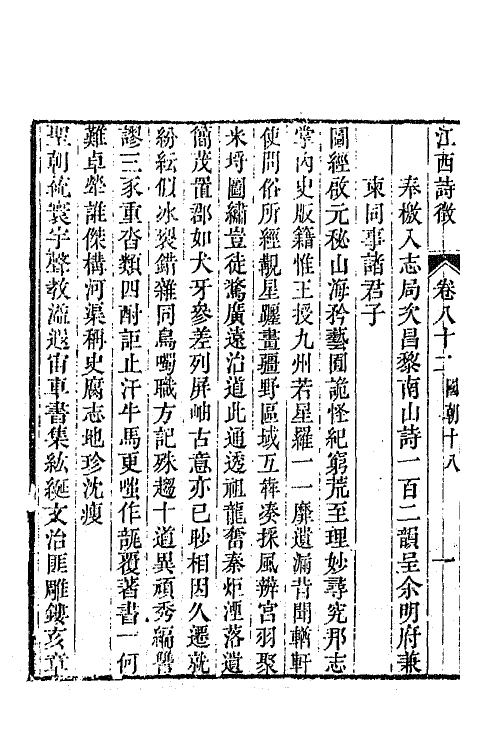 江西詩徵 卷八十二 國朝十八 一
奉檄入志局次昌黎南山詩一百二韻呈余明府兼
柬同事諸君子
圖經啟元秘山海矜藝囿詭怪紀窮荒至理妙尋究那志
掌內史版籍惟王授九州若星羅一一靡遺漏昔聞輶軒
使問俗所經覯星躔畫疆野區域互犇湊採風辨宮羽聚
米埒圖繡豈徒驚廣遠治道此通透祖龍奮秦炬湮落遺
簡茂置郡如犬牙參差列屏岫古意亦已眇相因久遷就
紛紜似冰裂錯雜同鳥噣職方記殊趨十道異頑秀編譽
謬三豕重沓類四酎詎止汗牛馬更嗤作瓿覆著書一何
難卓犖誰傑構河渠稱史腐志地珍沈瘦
聖朝統寰宇聲教流遐宙車書集紘綖文治匪雕鏤亥章